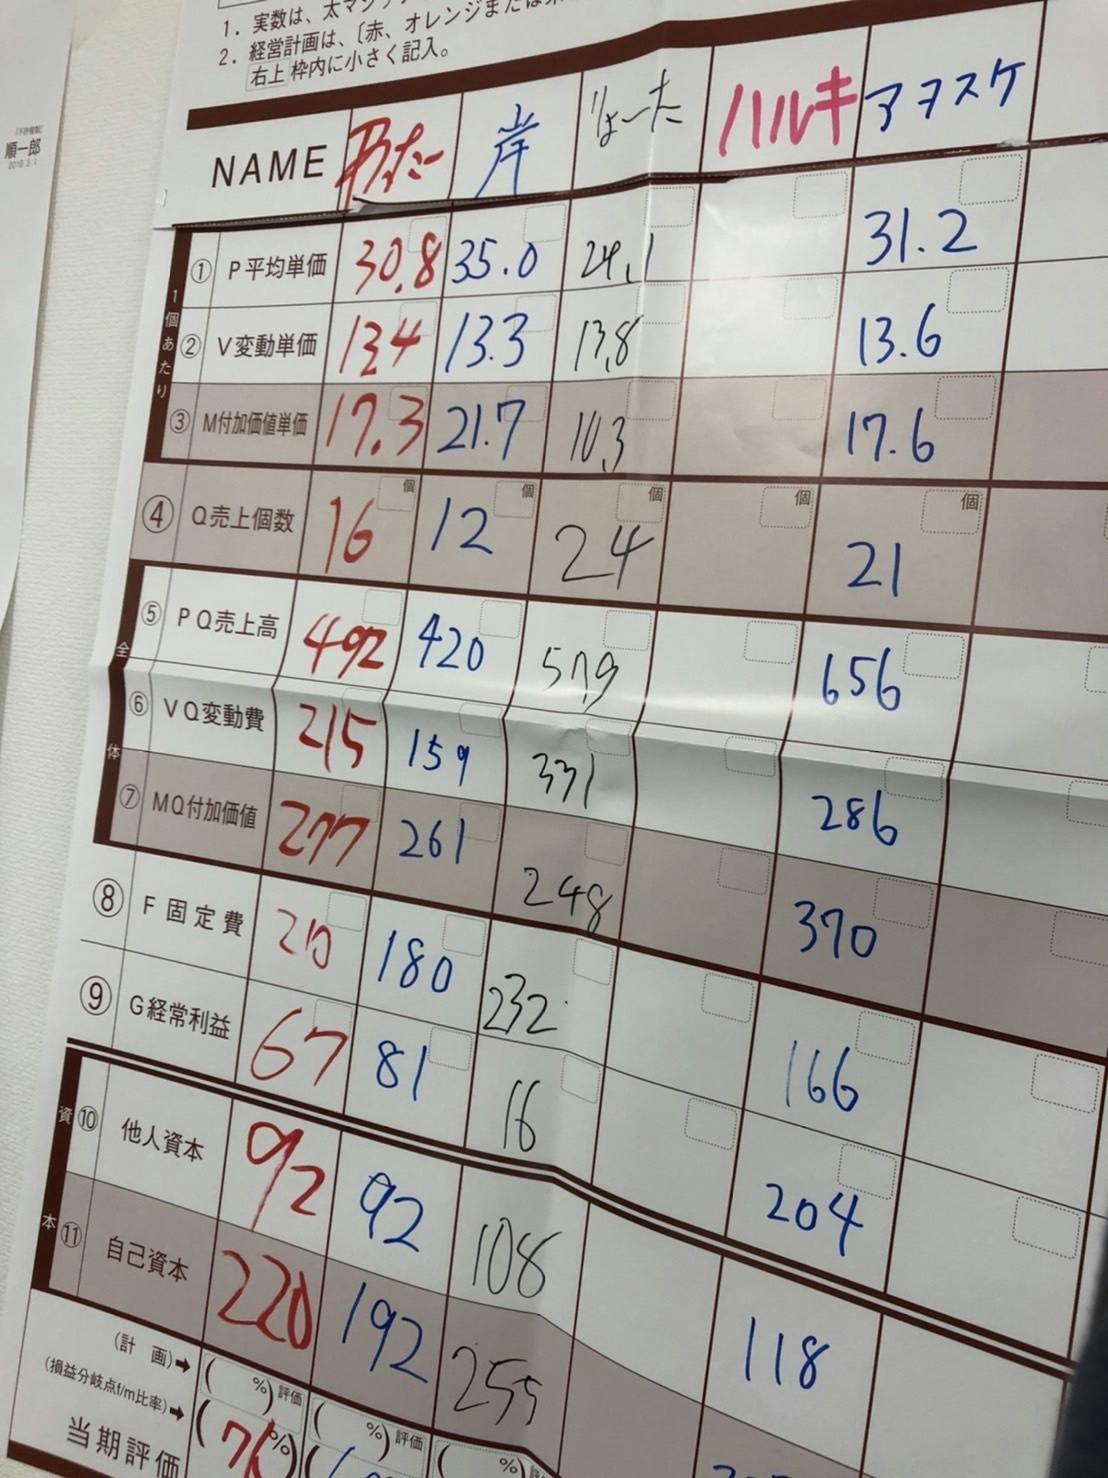 1. 実数は、太マジッ
2. 経営計画は、〔赤、オレンジまたは
右上枠内に小さく記入。
順一郎
NAME 岸 りょーた ハルキ アヲスケ
1個あたり
① P平均単価 30.8 35.0 24.1 31.2
② V変動単価 13.4 13.3 13.8 13.6
③ M付加価値単価 17.3 21.7 10.3 17.6
④ Q売上個数 16個 12個 24個 個 21個
全体
⑤ PQ売上高 492 420 579 656
⑥ VQ変動費 215 159 331 286
⑦ MQ付加価値 277 261 248 370
⑧ F固定費 210 180 232 166
⑨ G経常利益 67 81 16 204
資本
⑩ 他人資本 92 92 108
⑪ 自己資本 220 192 255 118
(計画)➡ ( %) 評価 ( %) 評価 ( %)
(損益分岐点f/m比率)➡ (76%)
当期評価